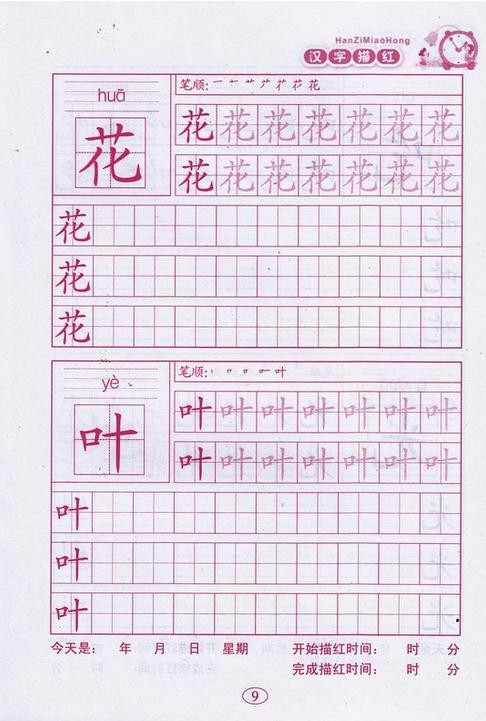 HanZiMiaoHong
汉字描红
huā
花
笔顺:
花花花花花花花
花花花花花花花
花
花
花
yè
叶
笔顺:
叶叶叶叶叶叶叶
叶叶叶叶叶叶叶
叶
叶
叶
今天是: 年 月 日 星期 开始描红时间: 时 分
完成描红时间: 时 分
9